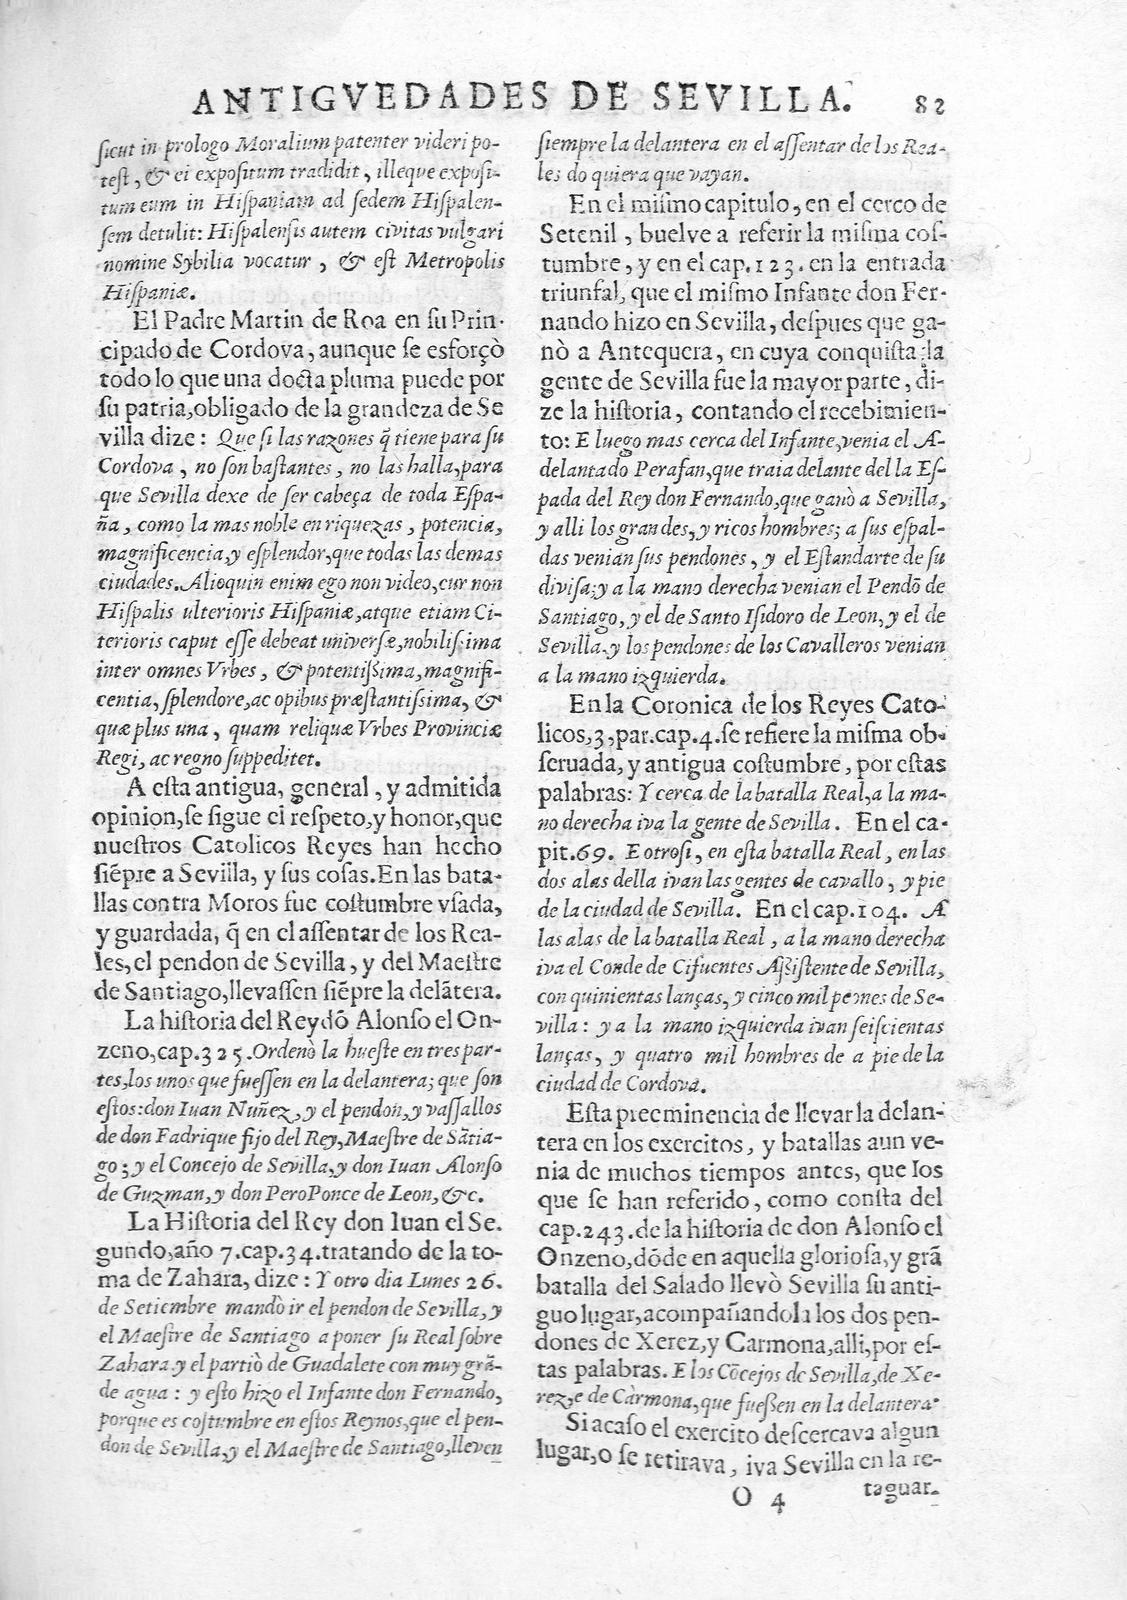 ANTIGVEDADES DE SEVILLA. 82
ſicut in prologo Moralium patenter videri po-
teſt, & ei expoſitum tradidit, illeque expoſi-
tum eum in Hiſpaniam ad ſedem Hiſpalen-
ſem detulit: Hiſpalenſis autem civitas vulgari
nomine Sybilia vocatur, & eſt Metropolis
Hiſpaniæ.
El Padre Martin de Roa en ſu Prin-
cipado de Cordova, aunque ſe esforçò
todo lo que una docta pluma puede por
ſu patria, obligado de la grandeza de Se
villa dize: Que ſi las razones q̃ tiene para ſu
Cordova, no ſon baſtantes, no las halla, para
que Sevilla dexe de ſer cabeça de toda Eſpa-
ña, como la mas noble en riquezas, potencia,
magnificencia, y eſplendor, que todas las demas
ciudades. Alioquin enim ego non video, cur non
Hiſpalis ulterioris Hiſpaniæ, atque etiam Ci-
terioris caput eſſe debeat univerſæ, nobiliſsima
inter omnes Vrbes, & potentiſsima, magnifi-
centia, ſplendore, ac opibus præſtantiſsima, &
quæ plus una, quam reliquæ Vrbes Provinciæ
Regi, ac regno ſuppeditet.
A eſta antigua, general, y admitida
opinion, ſe ſigue el reſpeto, y honor, que
nueſtros Catolicos Reyes han hecho
ſiẽpre a Sevilla, y ſus coſas. En las bata-
llas contra Moros fue coſtumbre vſada,
y guardada, q̃ en el aſſentar de los Rea-
les, el pendon de Sevilla, y del Maeſtre
de Santiago, llevaſſen ſiẽpre la delãtera.
La hiſtoria del Rey dõ Alonſo el On-
zeno, cap. 325. Ordenò la hueſte en tres par-
tes, los unos que fueſſen en la delantera; que ſon
eſtos: don Iuan Nuñez, y el pendon, y vaſſallos
de don Fadrique fijo del Rey, Maeſtre de Sãtia-
go; y el Concejo de Sevilla, y don Iuan Alonſo
de Guzman, y don Pero Ponce de Leon, &c.
La Hiſtoria del Rey don Iuan el Se-
gundo, año 7. cap. 34. tratando de la to-
ma de Zahara, dize: Y otro dia Lunes 26.
de Setiembre mandò ir el pendon de Sevilla, y
el Maeſtre de Santiago a poner ſu Real ſobre
Zahara. y el partiò de Guadalete con muy grã-
de agua: y eſto hizo el Infante don Fernando,
porque es coſtumbre en eſtos Reynos, que el pen-
don de Sevilla, y el Maeſtre de Santiago, lleven
ſiempre la delantera en el aſſentar de los Rea-
les do quiera que vayan.
En el miſmo capitulo, en el cerco de
Setenil, buelve a referir la miſma coſ-
tumbre, y en el cap. 123. en la entrada
triunfal, que el miſmo Infante don Fer-
nando hizo en Sevilla, deſpues que ga-
nò a Antequera, en cuya conquiſta la
gente de Sevilla fue la mayor parte, di-
ze la hiſtoria, contando el recebimien-
to: E luego mas cerca del Infante, venia el A-
delantado Perafan, que traia delante del la Eſ-
pada del Rey don Fernando, que ganò a Sevilla,
y alli los grandes, y ricos hombres; a ſus eſpal-
das venian ſus pendones, y el Eſtandarte de ſu
diviſa; y a la mano derecha venian el Pendõ de
Santiago, y el de Santo Iſidoro de Leon, y el de
Sevilla, y los pendones de los Cavalleros venian
a la mano izquierda.
En la Coronica de los Reyes Cato-
licos, 3, par. cap. 4. ſe refiere la miſma ob-
ſeruada, y antigua coſtumbre, por eſtas
palabras: Y cerca de la batalla Real, a la ma-
no derecha iva la gente de Sevilla. En el ca-
pit. 69. E otroſi, en eſta batalla Real, en las
dos alas della ivan las gentes de cavallo, y pie
de la ciudad de Sevilla. En el cap. 104. A
las alas de la batalla Real, a la mano derecha
iva el Conde de Cifuentes Aſsiſtente de Sevilla,
con quinientas lanças, y cinco mil peones de Se-
villa: y a la mano izquierda ivan ſeiſcientas
lanças, y quatro mil hombres de a pie de la
ciudad de Cordova.
Eſta preeminencia de llevar la delan-
tera en los exercitos, y batallas aun ve-
nia de muchos tiempos antes, que los
que ſe han referido, como conſta del
cap. 243. de la hiſtoria de don Alonſo el
Onzeno, dõde en aquella glorioſa, y grã
batalla del Salado llevò Sevilla ſu anti-
guo lugar, acompañandola los dos pen-
dones de Xerez, y Carmona, alli, por eſ-
tas palabras. E los Cõcejos de Sevilla, de Xe-
rez, e de Carmona, que fueſſen en la delantera.
Si acaſo el exercito deſcercava algun
lugar, o ſe retirava, iva Sevilla en la re-
O 4 taguar-